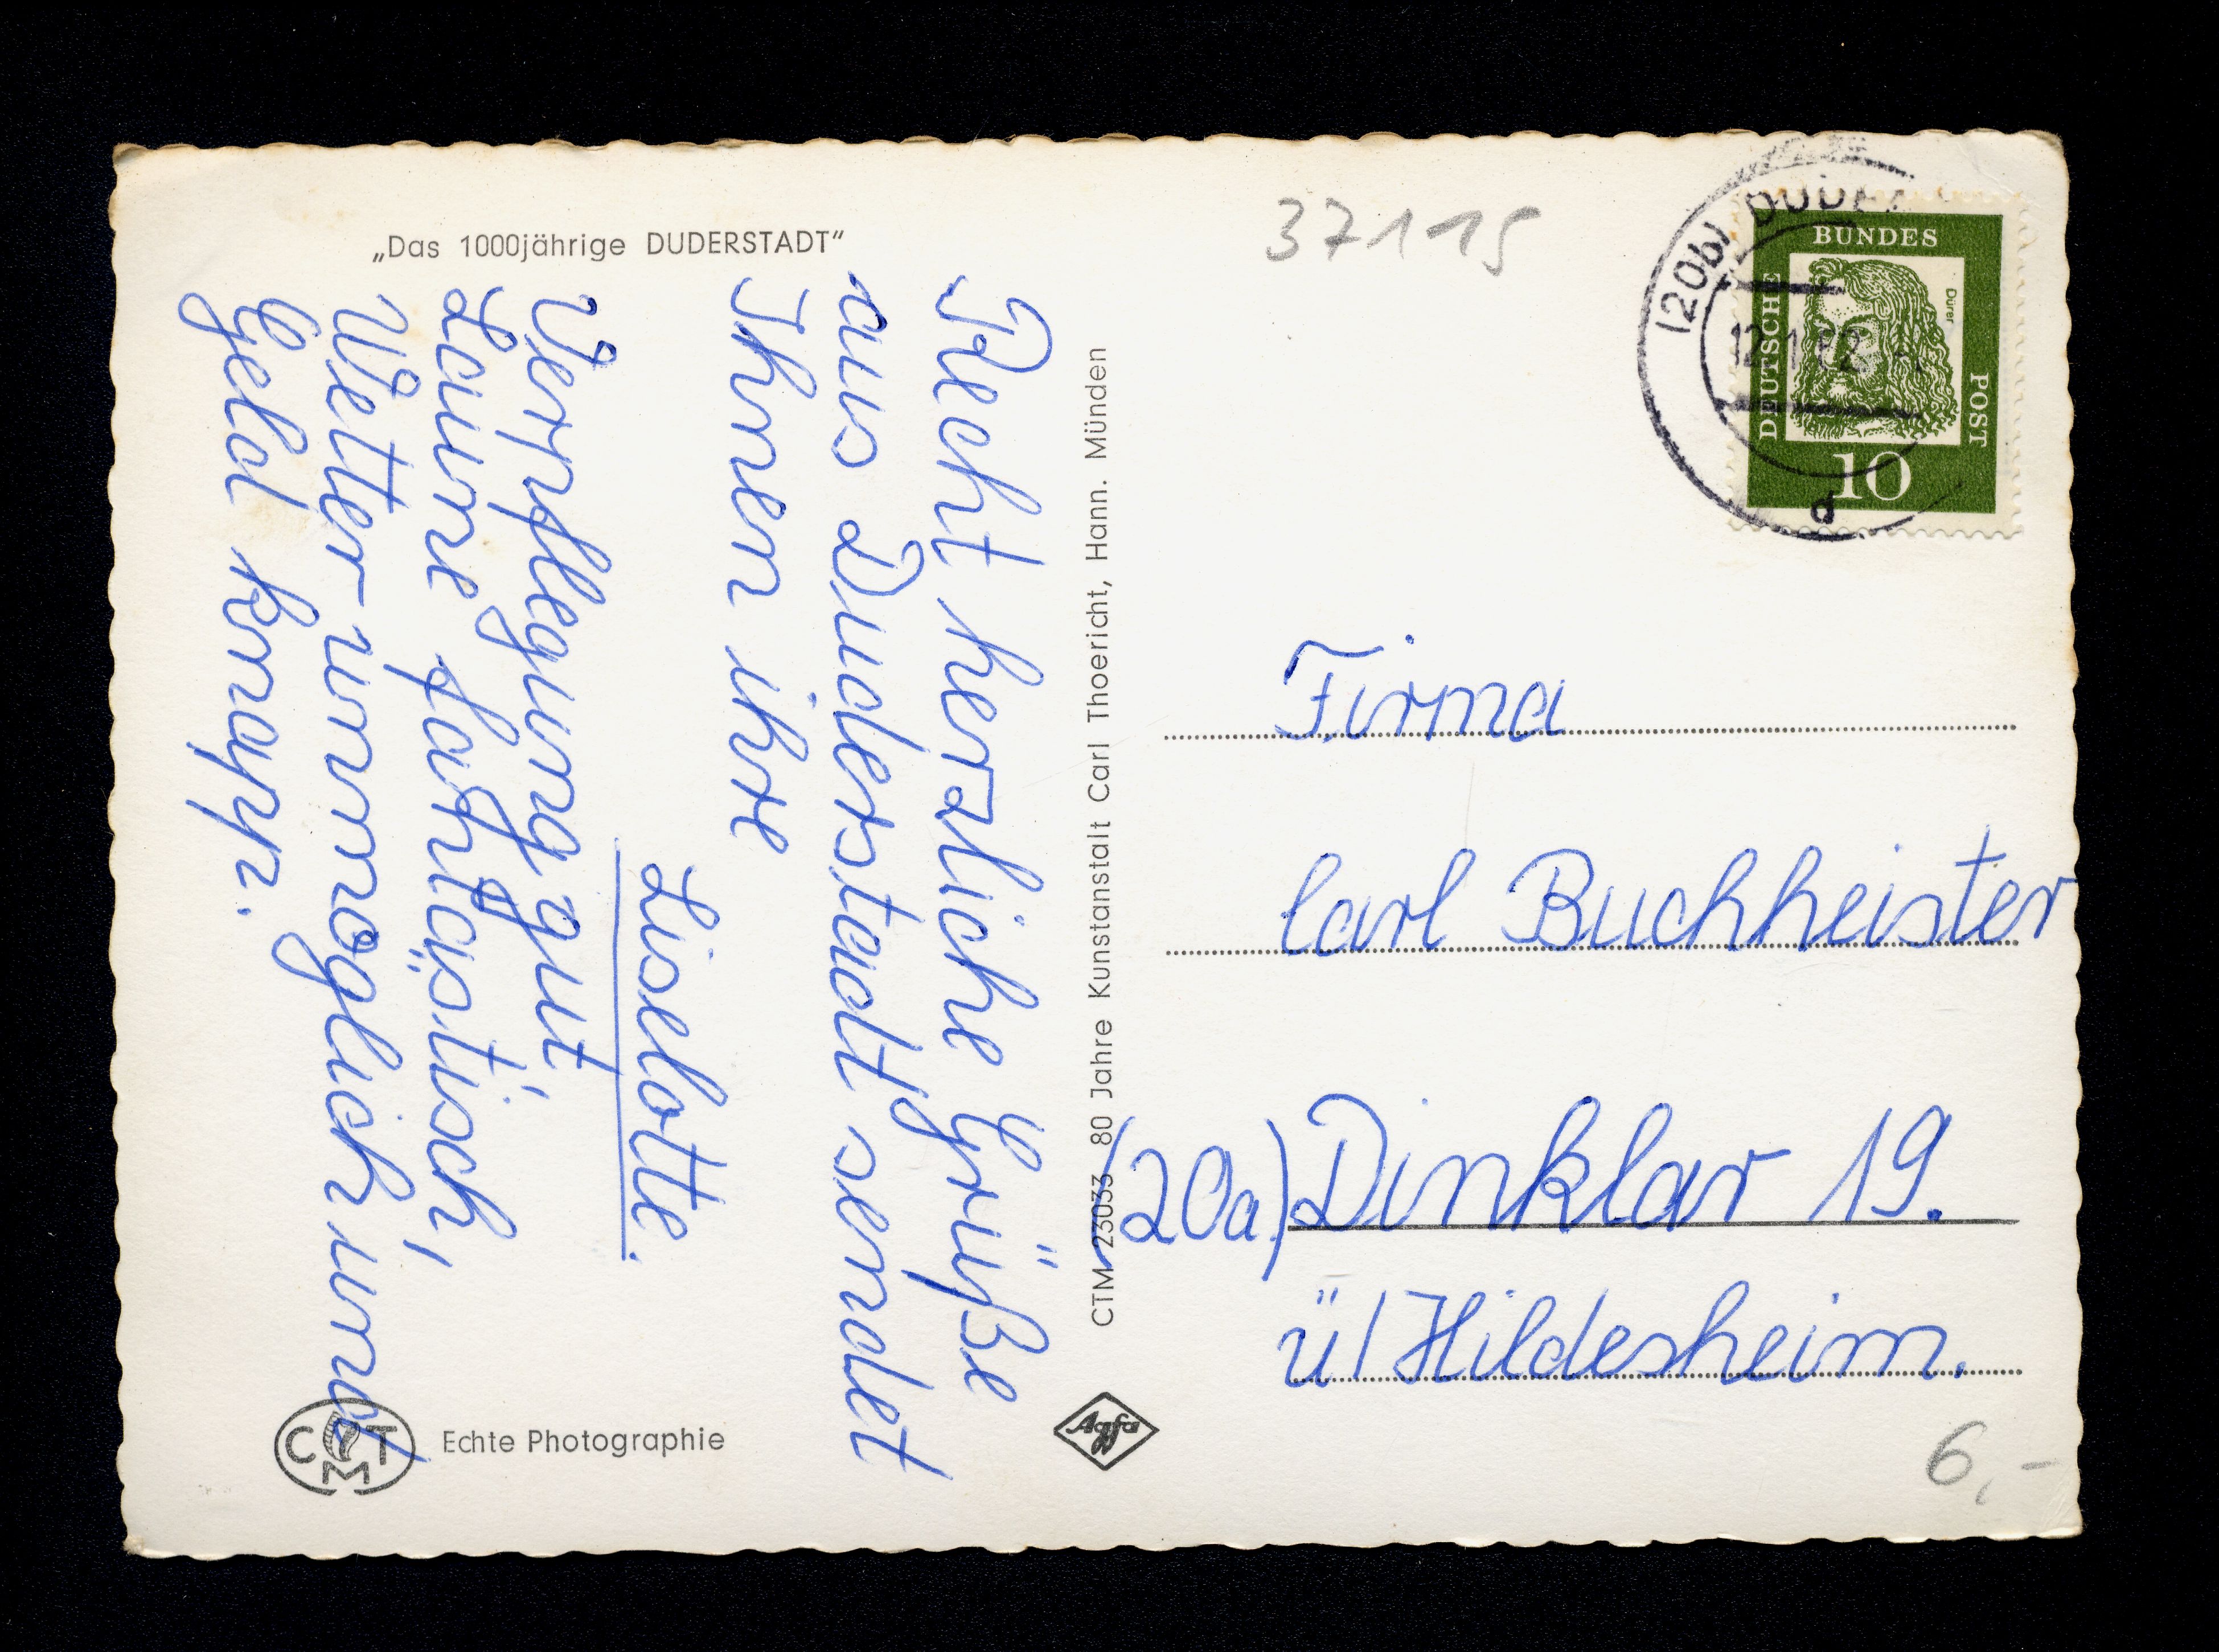 „Das 1000jährige DUDERSTADT“
Recht herzliche Grüße
aus Duderstadt sendet
Ihnen ihre
Liselotte.
Verpflegung gut,
Laune fantastisch,
Wetter unmöglich und
Geld knapp.
CTM 23033 80 Jahre Kunstanstalt Carl Thoericht, Hann. Münden
37115
(20b) DUDER
12.1.62
d
DEUTSCHE
BUNDES
POST
Dürer
10
Firma
Carl Buchheister
(20a) Dinklar 19.
ü/Hildesheim.
6,-
C T M
Echte Photographie
Agfa